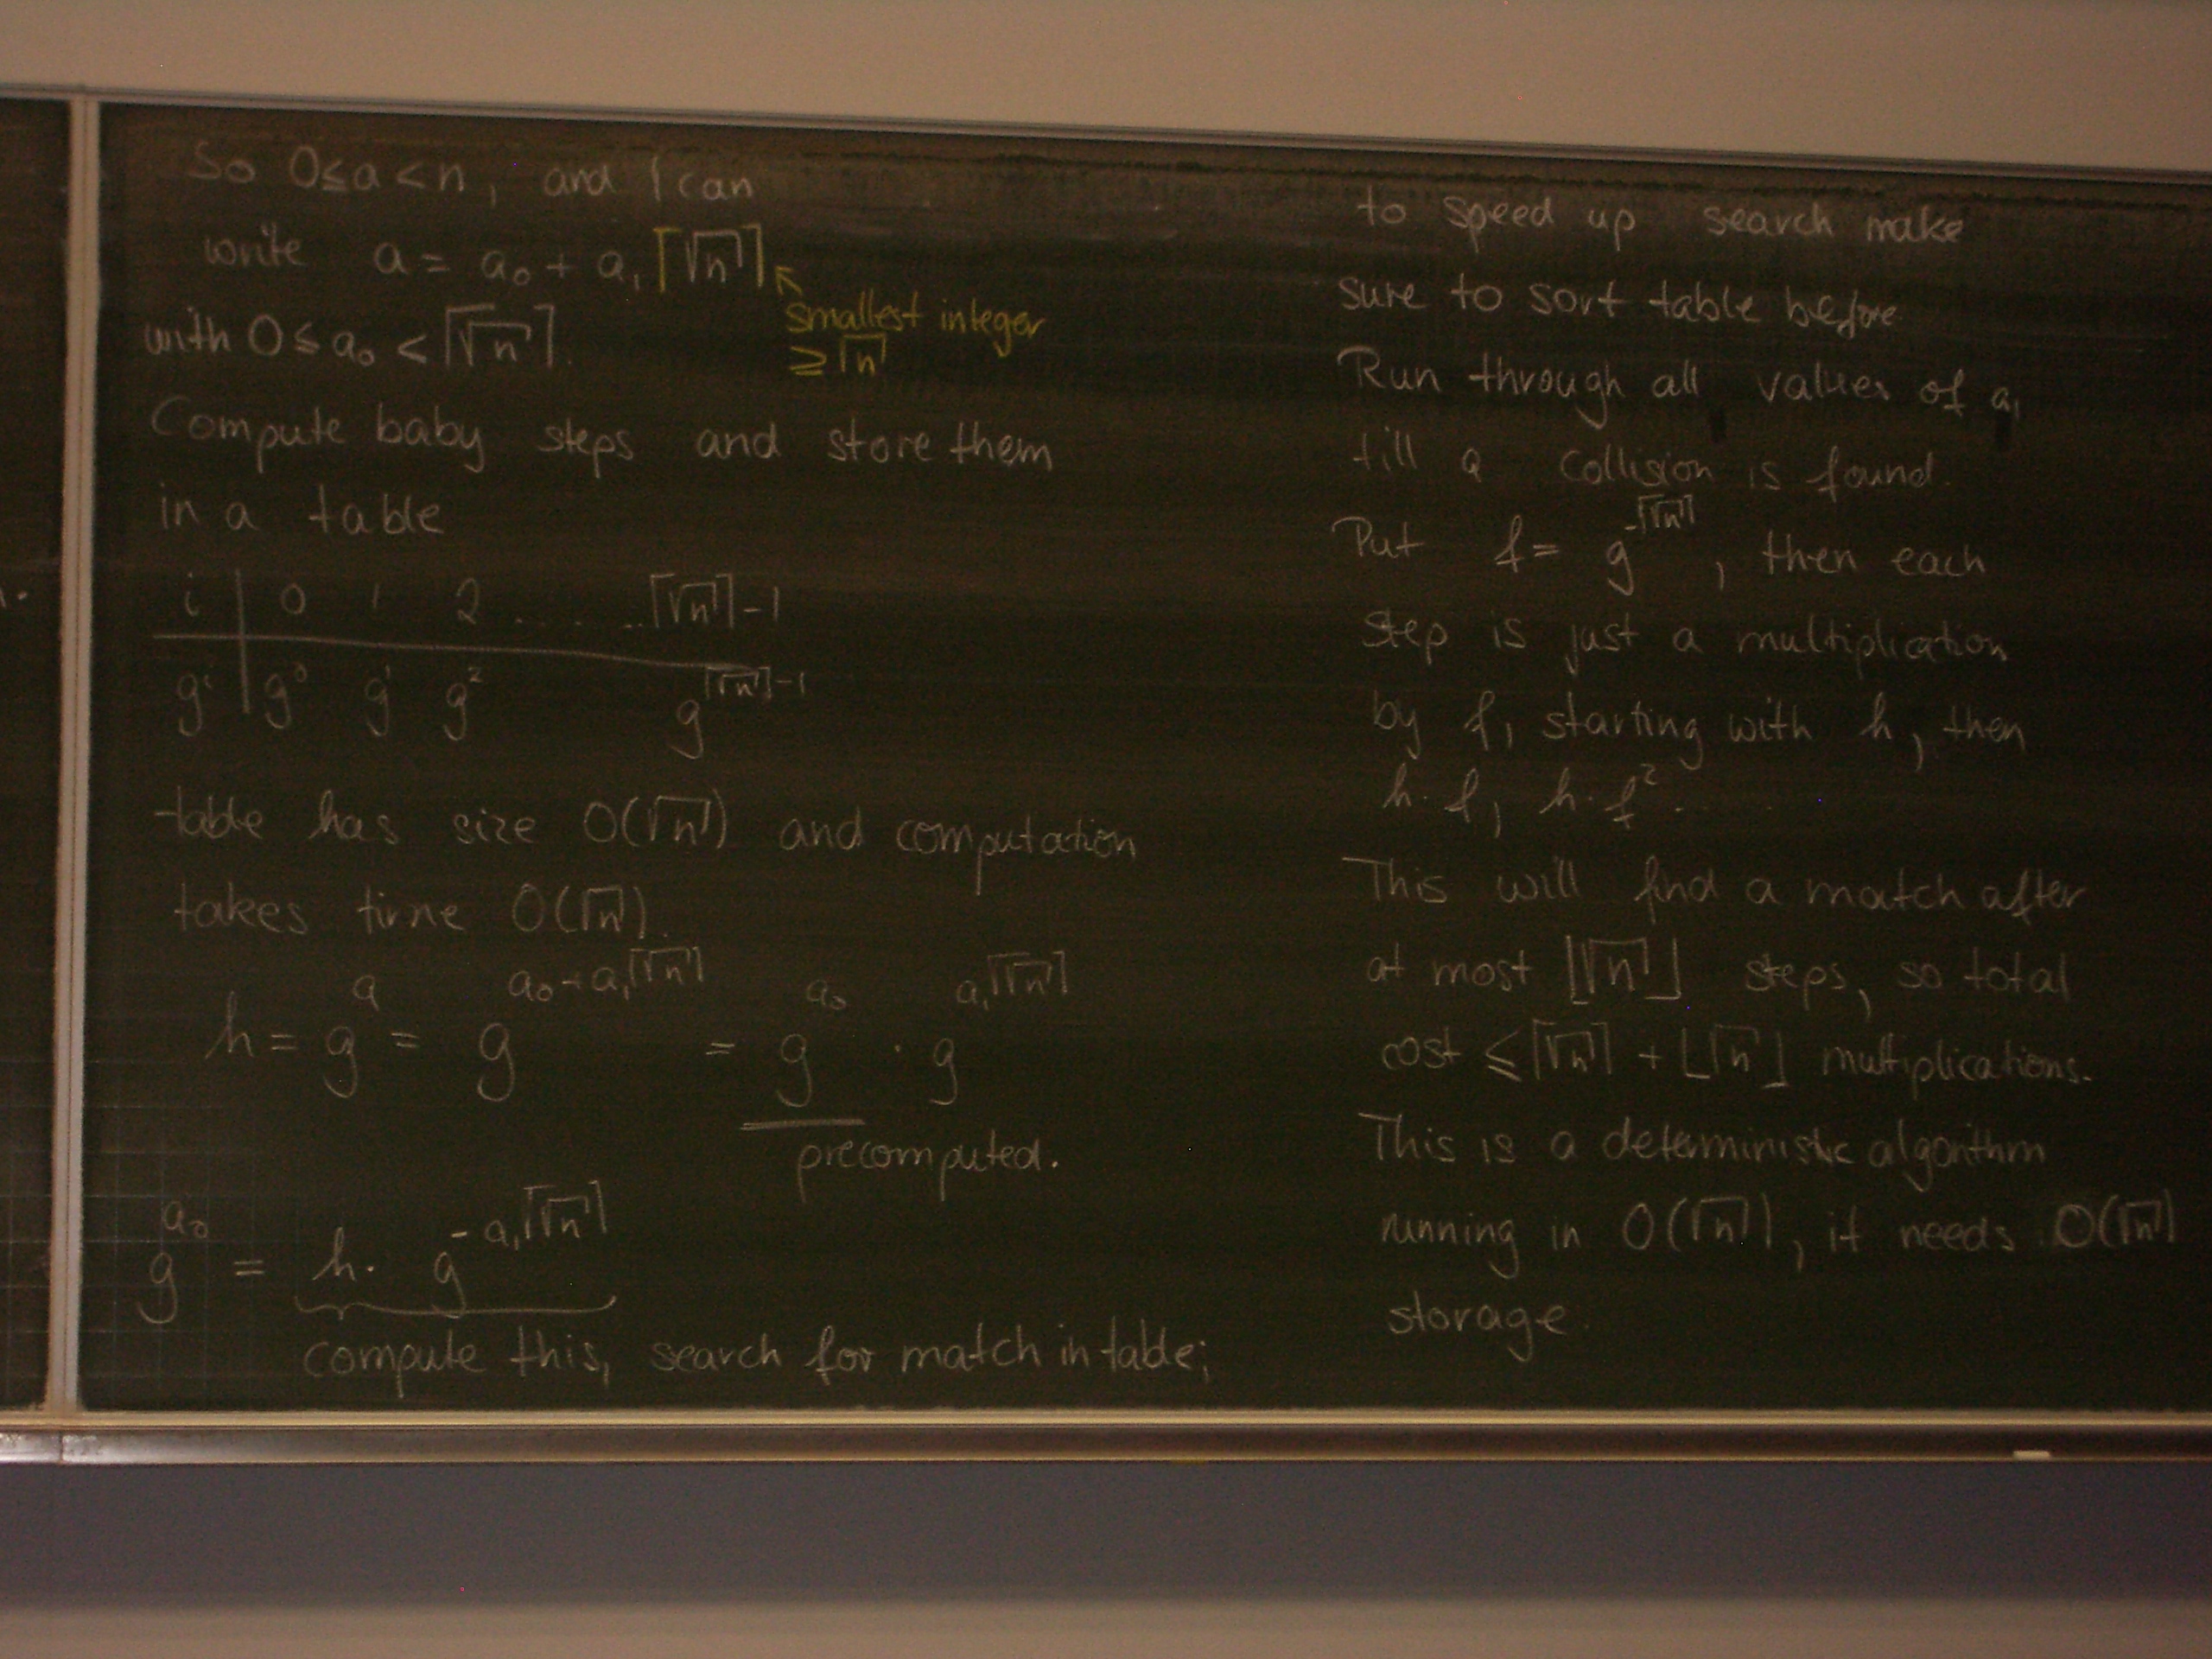 So 0≤a<n, and I can
write a = a₀ + a₁⌈√n⌉
smallest integer
≥ √n
with 0 ≤ a₀ < ⌈√n⌉.
Compute baby steps and store them
in a table
i | 0 1 2 ........ ⌈√n⌉-1
gⁱ | g⁰ g¹ g² g^(⌈√n⌉-1)
table has size O(√n) and computation
takes time O(√n).
h = g^a = g^(a₀+a₁⌈√n⌉) = g^(a₀) · g^(a₁⌈√n⌉)
precomputed.
g^(a₀) = h · g^(-a₁⌈√n⌉)
compute this, search for match in table;
to speed up search make
sure to sort table before.
Run through all values of a₁
till a collision is found.
Put f = g^(-⌈√n⌉), then each
step is just a multiplication
by f, starting with h, then
h·f, h·f² .......
This will find a match after
at most ⌊√n⌋ steps, so total
cost ≤ ⌈√n⌉ + ⌊√n⌋ multiplications.
This is a deterministic algorithm
running in O(√n), it needs O(√n)
storage.